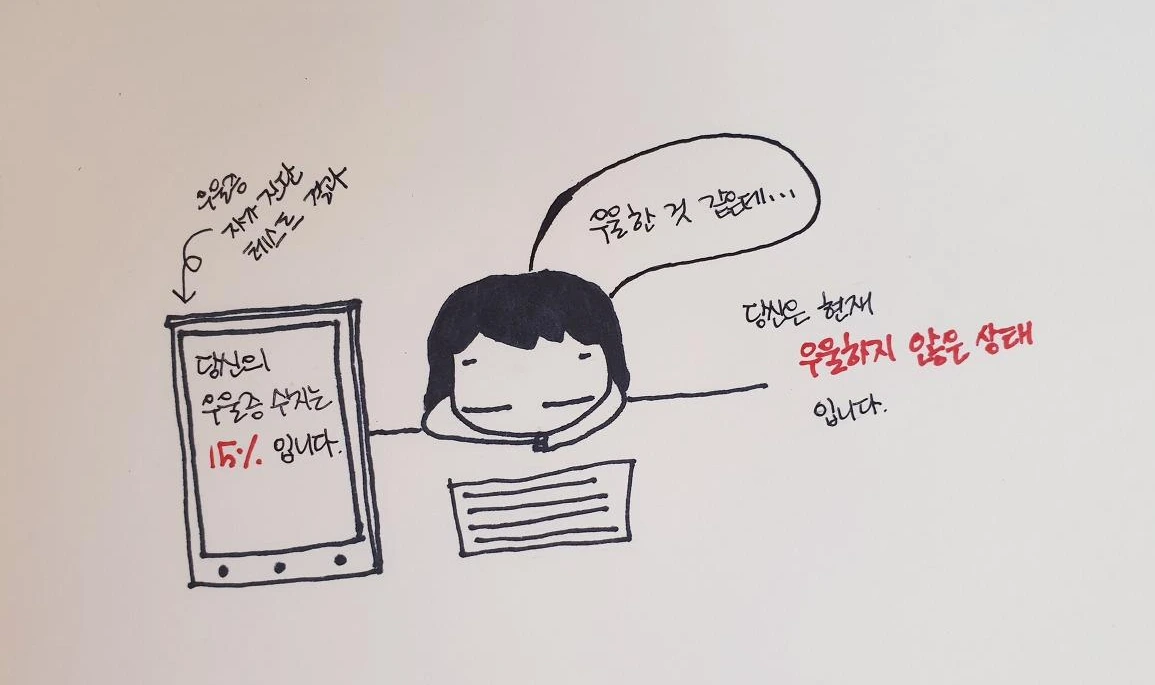 우울증
자가 진단
테스트 결과
당신의
우울증 수치는
15% 입니다.
우울한 것 같은데...
당신은 현재
우울하지 않은 상태
입니다.